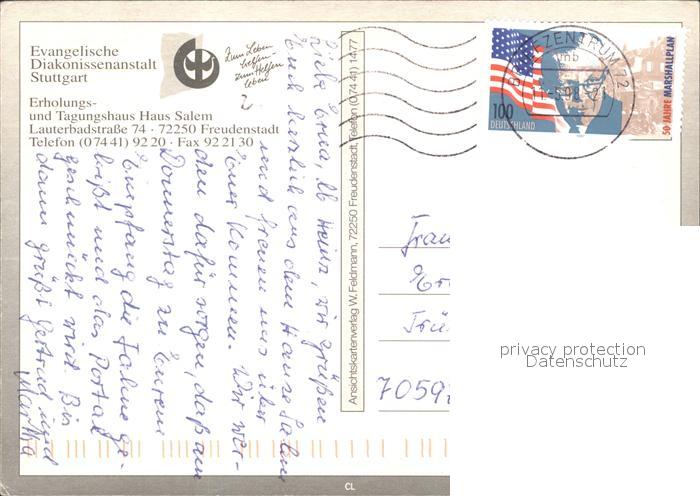 Evangelische
Diakonissenanstalt
Stuttgart
Erholungs-
und Tagungshaus Haus Salem
Lauterbadstraße 74 · 72250 Freudenstadt
Telefon (0 74 41) 92 20 · Fax 92 21 30
zum Leben
helfen
zum Helfen
leben
Liebe Erna, lb Heinz, wir grüßen
Euch herzlich aus dem Hause Salem
und freuen uns über
Euer Kommen. Wir wer-
den dafür sorgen, daß am
Donnerstag zu Eurem
Empfang die Fahne ge-
hißt und das Portal
geschmückt wird. Bis
dann grüßt Gertrud und
Martha
Ansichtskartenverlag W. Feldmann, 72250 Freudenstadt, Telefon (0 74 41) 1477
BRIEFZENTRUM 72
mb
100
DEUTSCHLAND
50 JAHRE MARSHALLPLAN
Frau
7059
privacy protection
Datenschutz
CL